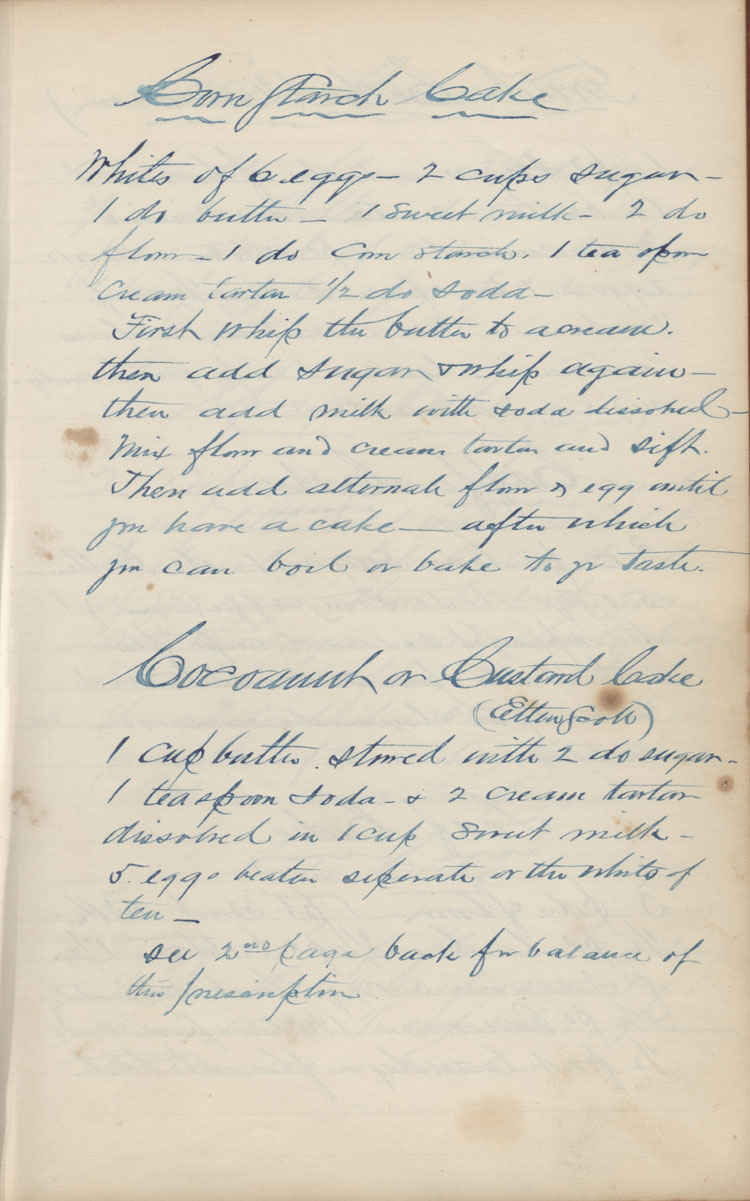 Corn Starch Cake
Whites of 6 eggs - 2 cups sugar -
1 do butter - 1 sweet milk - 2 do
flour - 1 do Corn starch. 1 tea spoon
cream tartar 1/2 do soda -
First whip the butter to a cream.
then add sugar & whip again -
then add milk with soda dissolved -
Mix flour and cream tartar and sift.
Then add alternate flour & egg until
you have a cake - after which
you can boil or bake to yr taste.
Cocoanut or Custard Cake
(Ellen Scott)
1 cup butter stired with 2 do sugar -
1 teaspoon soda - & 2 cream tartar
dissolved in 1 cup sweet milk -
5 eggs beaten seperate or the whites of
ten -
see 2nd page back for balance of
this prescription